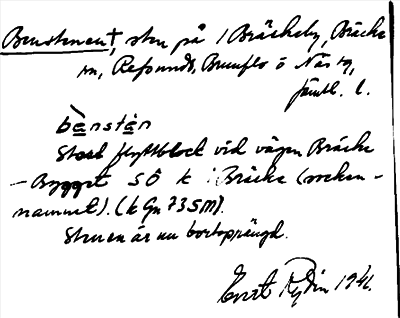 Benstenen†, sten på 1 Bräckeby, Bräcke
sn, Refsunds, Brunflo o Näs tg,
Jämtl. l.
bànstàn
Stort flyttblock vid vägen Bräcke
– Bygget SÖ k i Bräcke (socken-
namnet). (k Gn 735M).
Stenen är nu bortsprängd.
Ernst Rydin 1941.